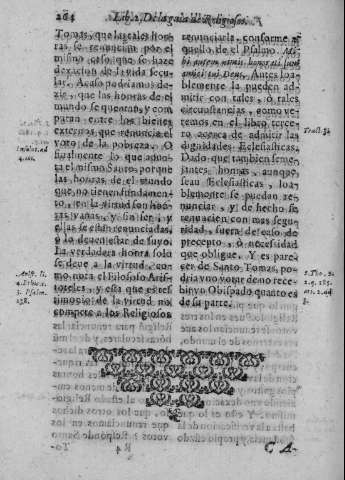 264 Lib. 2. De la guia de Religiosos.
Tomas, que las tales hon
ras se renuncian por el
mismo caso que se haze
dexacion de la vida secu
lar. Acaso podriamos de-
zir, que las honras de el
mundo se quentan, y com
paran entre los bienes
externos que renuncia el
voto de la pobreza. O
finalmente lo que apun-
ta el mismo Santo, porque
las honras de el mundo
que no tienen fundamen-
to, en la virtud son hon-
ras vanas, y sin ser, y
ellas se estan renunciadas,
ò lo deben estar de suyo.
La verdadera honra solo
se deue a la virtud, co-
mo nota el Filosofo Aris-
toteles, y esta que es tes-
timonio de la virtud no
compete a los Religiosos
renunciarla, conforme a
quello de el Psalmo. Mi-
hi autem nimis honorati sunt
amici tui Deus. Antes loa-
blemente la pueden ad-
mitir con tales, ò tales
circunstancias, como ve-
remos en el libro terce-
ro acerca de admitir las
dignidades Eclesiasticas.
Dado que tambien seme-
jantes honras, aunque
sean Eclesiasticas, loa-
blemente se puedan re-
nunciar, y de hecho se
renuncien con mas segu-
ridad, fuera del caso de
precepto, ò necessidad
que obligue. Y es pare-
cer de Santo Tomas, po-
dria vno votar de no rece-
bir Obispado quanto es
de su parte.
Tract. 3.
Arist. li.
4. Ethic. c.
3. Psalm.
138.
2. Tho. 2.
2. q. 185.
art. 2. ad
3.
C A-